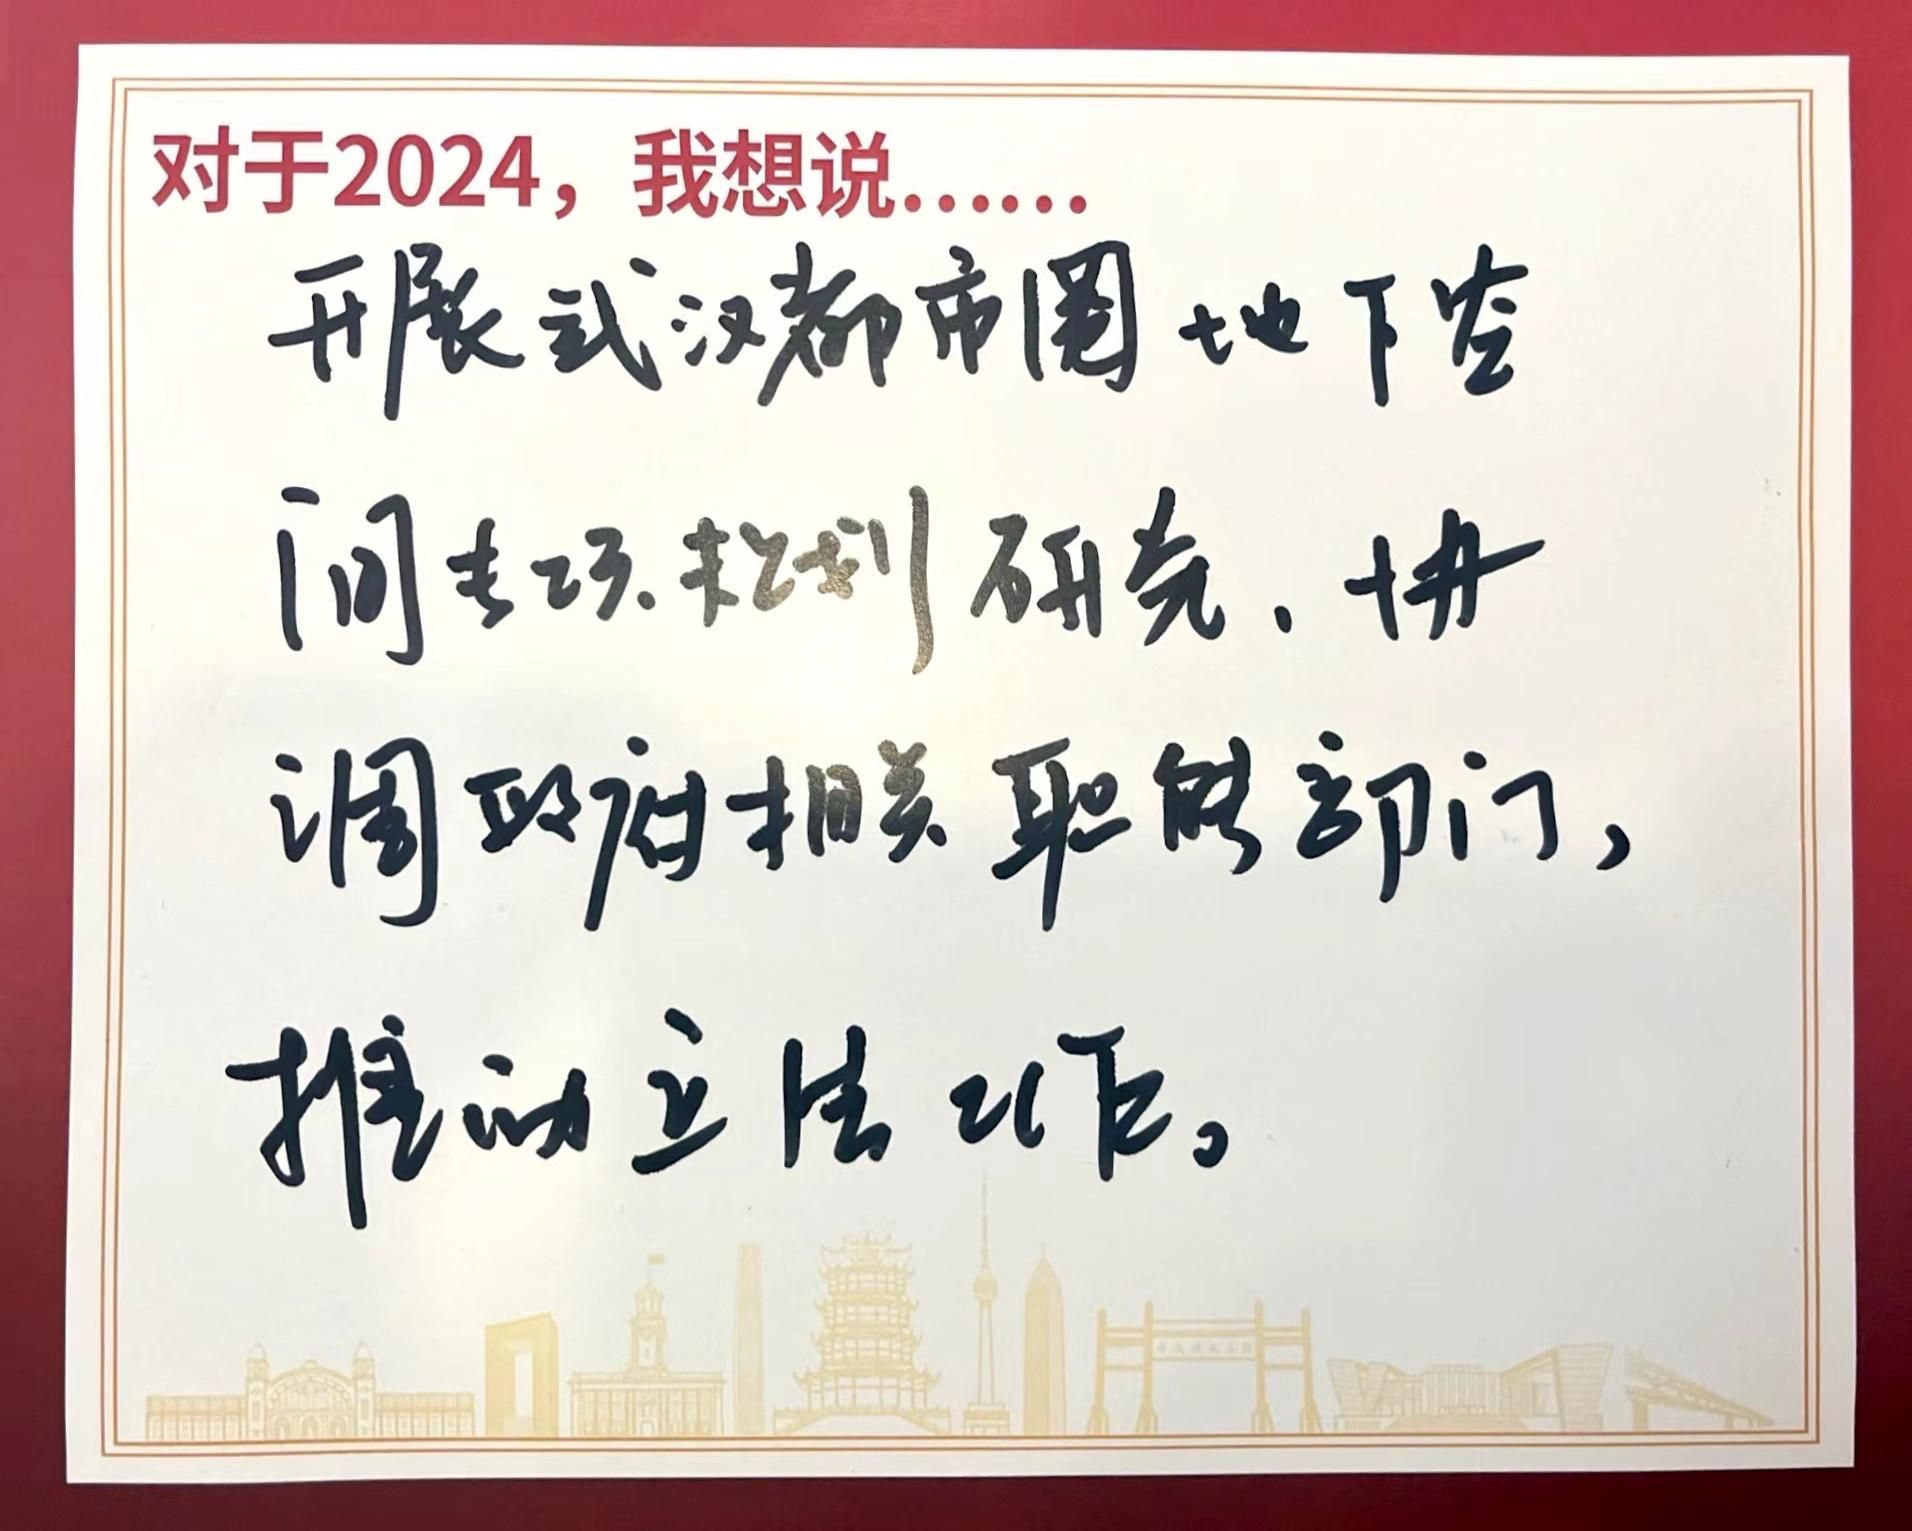 对于2024，我想说……
开展武汉都市圈地下空
间专项规划研究、协
调政府相关职能部门，
推动立法工作。